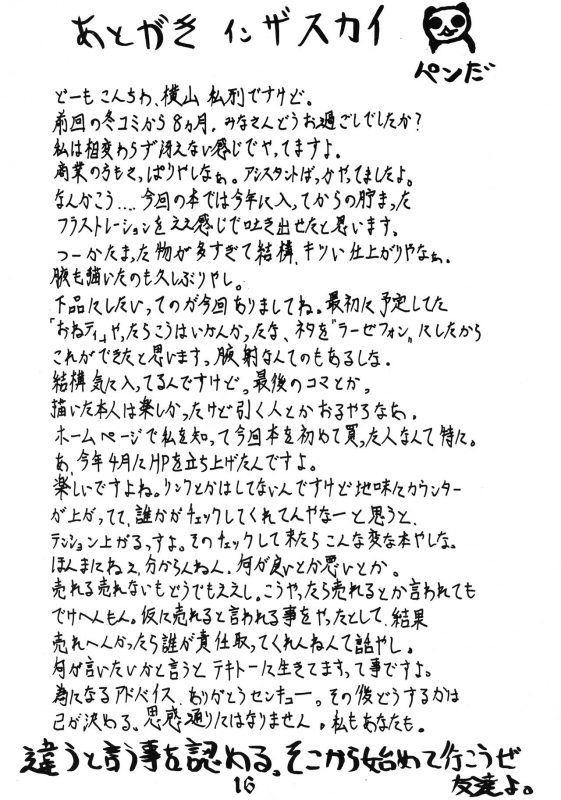 あとがき インザスカイ
ペンだ
どーもこんちわ、横山 私別ですけど。
前回の冬コミから8ヵ月、みなさんどうお過ごしでしたか?
私は相変わらず冴えない感じでやってますよ。
商業の方もさっぱりやしなぁ。アシスタントばっかやてましたよ。
なんかこう....今回の本では今年に入ってからの貯まった
フラストレーションをええ感じで吐き出せたと思います。
つーかたまった物が多すぎて結構、キツい仕上がりやなぁ。
腋も描いたのも久しぶりやし。
下品にしたいってのが今回ありましてね。最初に予定してた
「おねティ」やったらこうはいかんかったな、ネタを"ラーゼフォン"にしたから
これができたと思います。腋射なんてのもあるしな。
結構気に入ってるんですけど。最後のコマとか。
描いた本人は楽しかったけど引く人とかおるやろなあ。
ホームページで私を知って今回本を初めて買った人なんて特に。
あ、今年4月にHPを立ち上げたんですよ。
楽しいですよね。リンクとかはしてないんですけど地味にカウンター
が上がってて、誰かがチェックしてくれてんやなーと思うと、
テンション上がるっすよ。そのチェックして来たらこんな変な本やしな。
ほんまにねぇ、分からんねん、何が良いとか悪いとか。
売れる売れないもどうでもええし。こうやったら売れるとか言われても
でけへんもん。仮に売れると言われる事をやったとして、結果
売れへんかったら誰が責任取ってくれんねんて話やし。
何が言いたいかと言うとテキトーに生きてますって事ですよ。
為になるアドバイス、ありがとうセンキュー。その後どうするかは
己が決める。思惑通りにはなりません。私もあなたも。
違うと言う事を認める。そこから始めて行こうぜ
友達よ。
16